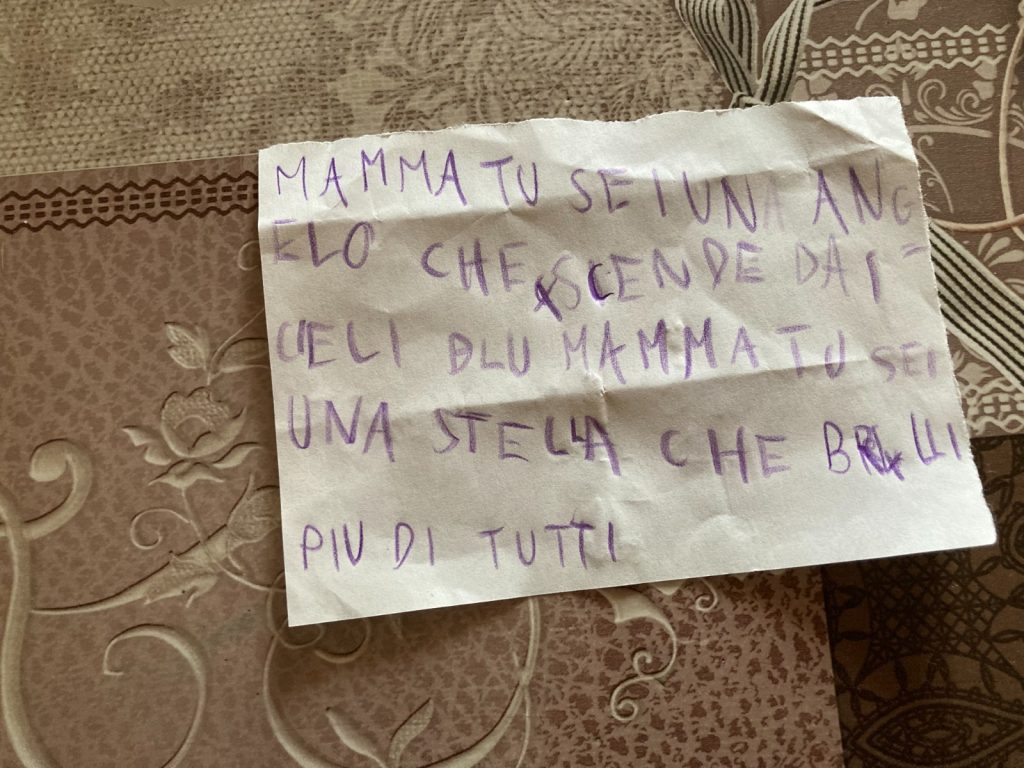 MAMMA TU SEI UNA ANG
ELO CHE SCENDE DAI
CIELI BLU MAMMA TU SEI
UNA STELLA CHE BRILLI
PIU DI TUTTI